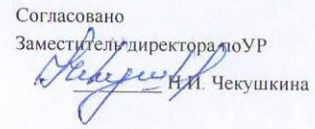 Согласовано
Заместитель директора поУР
Н.И. Чекушкина